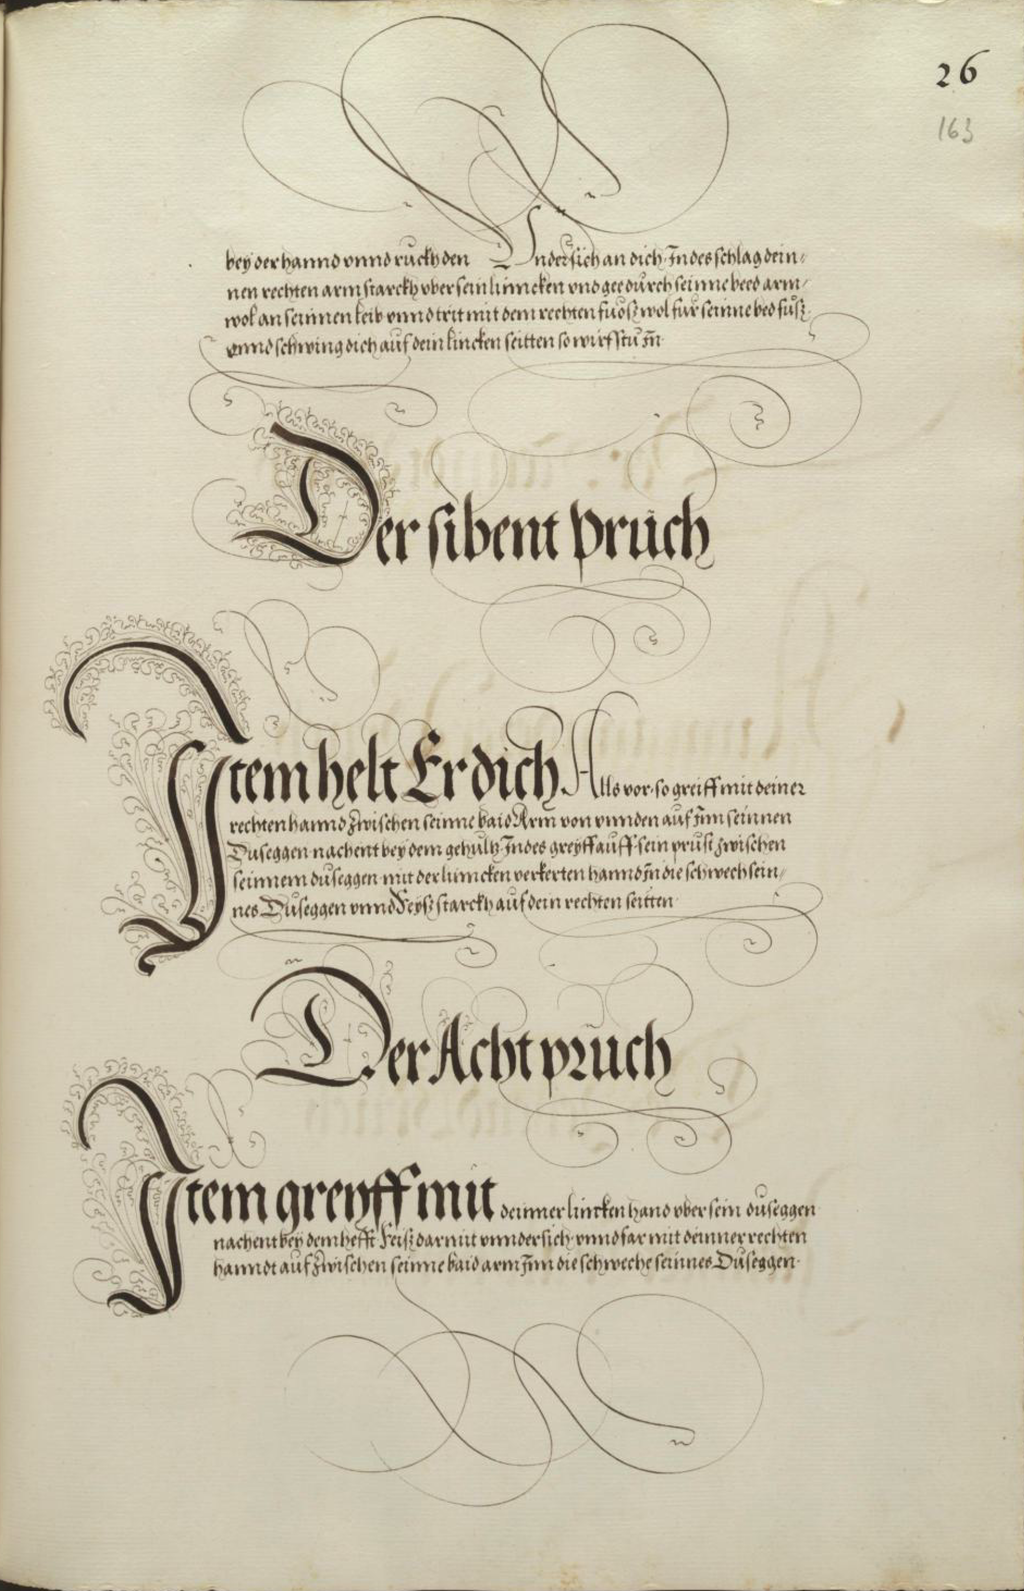 26
163
bey der hannd vnnd ruckh den Vndersich an dich Indes schlag dein-
nen rechten arm starckh vber sein linncken vnd gee durch seinne beed arm
wol an seinnen leib vnnd trit mit dem rechten fuosz wol fur seinne bed fusz
vnnd schwing dich auf dein lincken seitten so wirfstu In
Der sibent pruch
Item helt Er dich Alls vor so greiff mit deiner
rechten hannd zwischen seinne baid Arm von vnnden auf Inn seinnen
Duseggen nachent bey dem gehultz Indes greyff auff sein prust zwischen
seinnem duseggen mit der linncken verkerten hannd In die schwech sein-
nes Duseggen vnnd Reysz starckh auf dein rechten seitten
Der Acht pruch
Item greyff mit deinner lincken hand vber sein duseggen
nachent bey dem hefft Reisz darmit vnndersich vnnd far mit deinner rechten
hanndt auf zwischen seinne baid arm Inn die schweche seinnes Duseggen